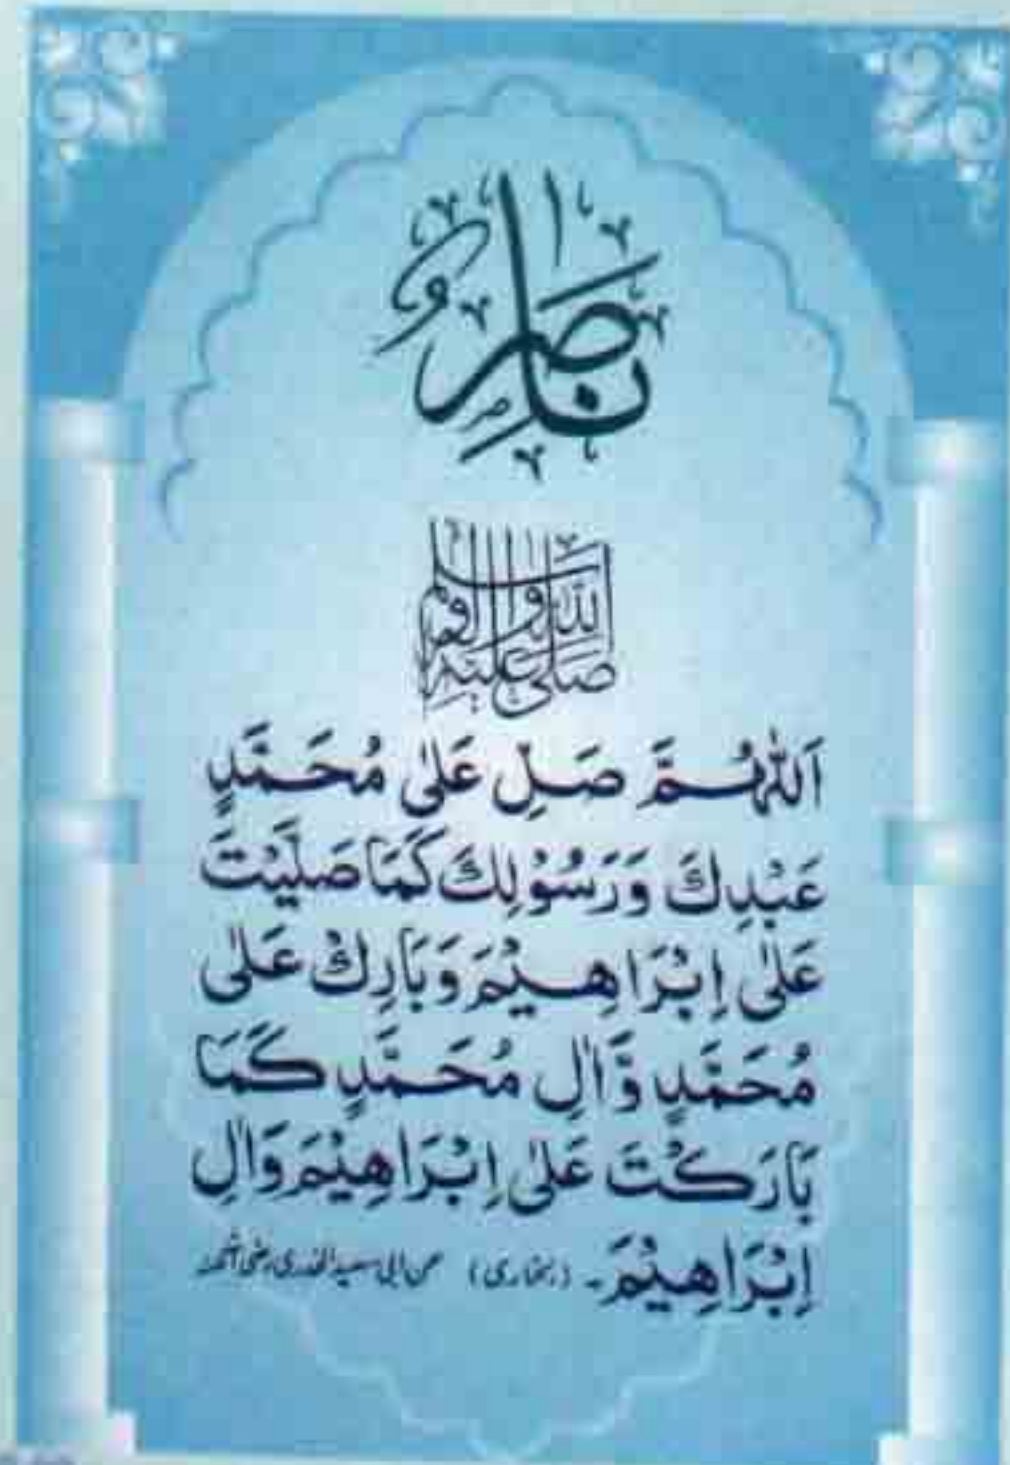 نَاصِرٌ
صَلَّى اللّٰهُ عَلَيْهِ وَاٰلِهٖ وَسَلَّمَ
اَللّٰهُمَّ صَلِّ عَلٰى مُحَمَّدٍ
عَبْدِكَ وَرَسُوْلِكَ كَمَا صَلَّيْتَ
عَلٰى اِبْرَاهِيْمَ وَبَارِكْ عَلٰى
مُحَمَّدٍ وَّاٰلِ مُحَمَّدٍ كَمَا
بَارَكْتَ عَلٰى اِبْرَاهِيْمَ وَاٰلِ
اِبْرَاهِيْمَ۔ (بخاری) عن ابی سعید الخدری رضی اللہ عنہ